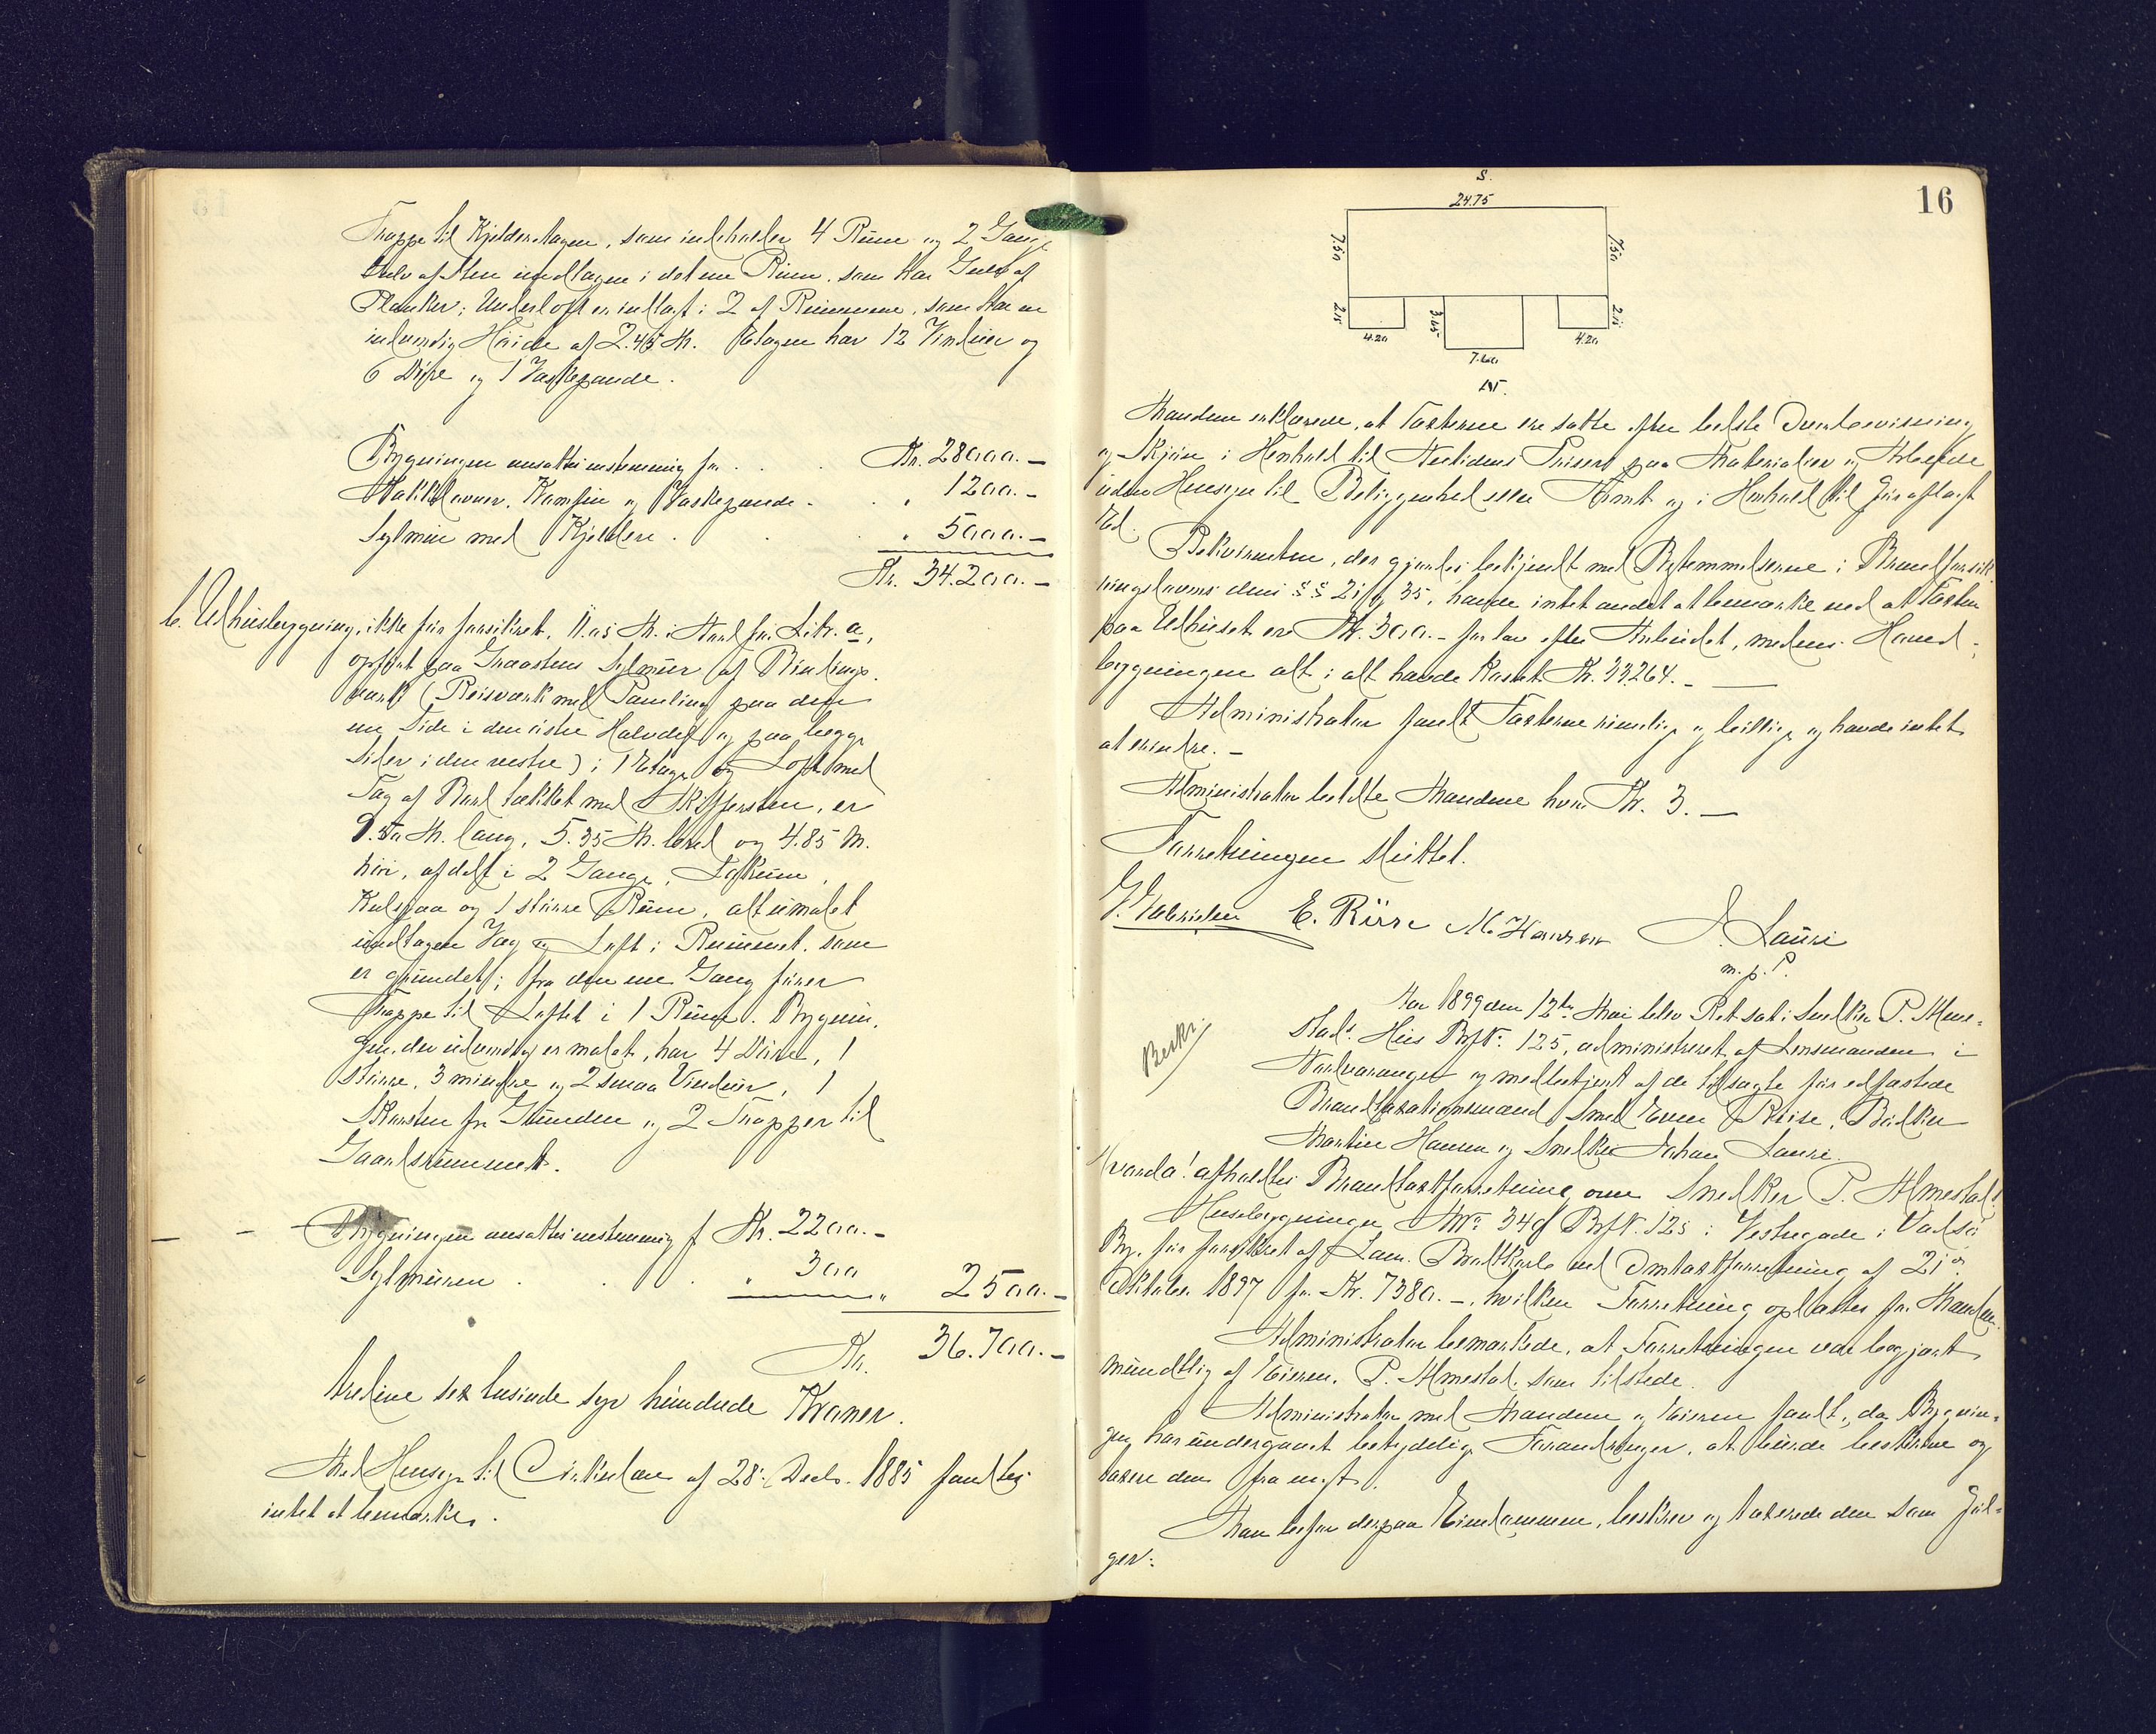 Trappe til Kjelderetagen, som indeholder 4 Rum og 2 Gange
Gulv af Sten undtagen i det ene Rum, som har Gulv af
Planker; Underloft er indlagt i 2 af Rummene, som har en
indvendig Höide af 2.45 M. Etagen har 12 Vinduer og
6 Döre og 1 Vaskepande.
Bygningen ansattes enstemmig for . . . Kr. 28000.-
Kakkelovner, Kamfin og Vaskepande . . „ 1200.-
Sylmur med Kjelder . . „ 5000.-
Kr. 34.200.-
b. Udhusbygning, ikke för forsikret, 11.05 M. i Nord for Litr. a,
opført paa Graastens Sylmur af Bindings-
værk (Reisværk med Paneling paa den
ene Side i den östre Halvdel og paa begge
Sider i den vestre) i 1 Etage og Loft med
Tag af Bord tækket med Skifersten, er
9.50 M. lang, 5.35 M. bred og 4.85 M.
höi, afdelt i 2 Gange,
Kulgaa og 1 större Rum, alt umalet
undtagen Væg og Loft i Rummet, som
er grundet; fra den ene Gang förer
Trappe til Loftet i 1 Rum. Bygnin-
gen, der udvendig er malet, har 4 Döre, 1
större, 3 mindre og 2 smaa Vinduer, 1
Skorsten fra Grunden og 2 Trapper til
Gaardsrummet.
Bygningen ansattes enstemmig f Kr. 2200.-
Sylmuren . . . „ 300 „ 2500.-
Kr. 36.700.-
tredive sex tusinde syv hundrede Kroner.
Med Hensyn til Cirkulære af 28de Decbr. 1885 fandtes
intet at bemærke.
16
S.
24.75
7.50
7.50
2.15
2.15
4.20
3.45
4.20
7.60
N.
Mændene erklærede, at Taxterne ere satte efter bedste Overbevisning
og Skjön i Henhold til Nutidens Priser paa Materialier og Arbeide
uden Hensyn til Beliggenhed eller Tomt og i Henhold til för aflagt
Ed.
Rekvirenten, der gjordes bekjendt med Bestemmelserne i Brandforsik-
ringslovens dens §§ 21 og 35, havde intet andet at bemærke end at Taxten
paa Udhuset er Kr. 300.- for lav efter Anbudet, medens Hoved-
bygningen alt i alt havde kostet Kr. 33264.-
Administrator fandt Taxterne rimelige og billige og havde intet
at erindre.-
Administrator betalte Mændene hver Kr. 3.-
Forretningen sluttet.
E. Rürse M. Hansen J. Lauri
m. p. P.
Beskr.
Aar 1899 den 12te Mai blev Ret sat i Snedker P. Alme-
stads Hus BrfN. 125, administreret af Lensmanden i
Nordvaranger og medbetjent af de tilsagte för edfæstede
Brandtaxationsmænd Smed Even Rörse, Bödker
Martin Hansen og Snedker Johan Lauri.
Hvorda! afholdtes Brandtaxtforretning over Snedker P. Almestads
Husebygninger M.No 349 BrfN. 125 i Vestregade i Vadsö
By, för forsikret af Lars. ved Omtaxtforretning af 21de
Oktober 1897 for Kr. 7380.-, hvilken Forretning oplæstes for Mændene.
Administrator bemærkede, at Forretningen var begjært
mundtlig af Eieren, P. Almestad, som tilstede.
Administrator med Mændene og Eieren fandt, da Bygnin-
gen har undergaaet betydelige Forandringer, at burde beskrive og
taxere den fra nyt.
Man befor derpaa Eiendommen, beskrev og taxerede den som föl-
ger: